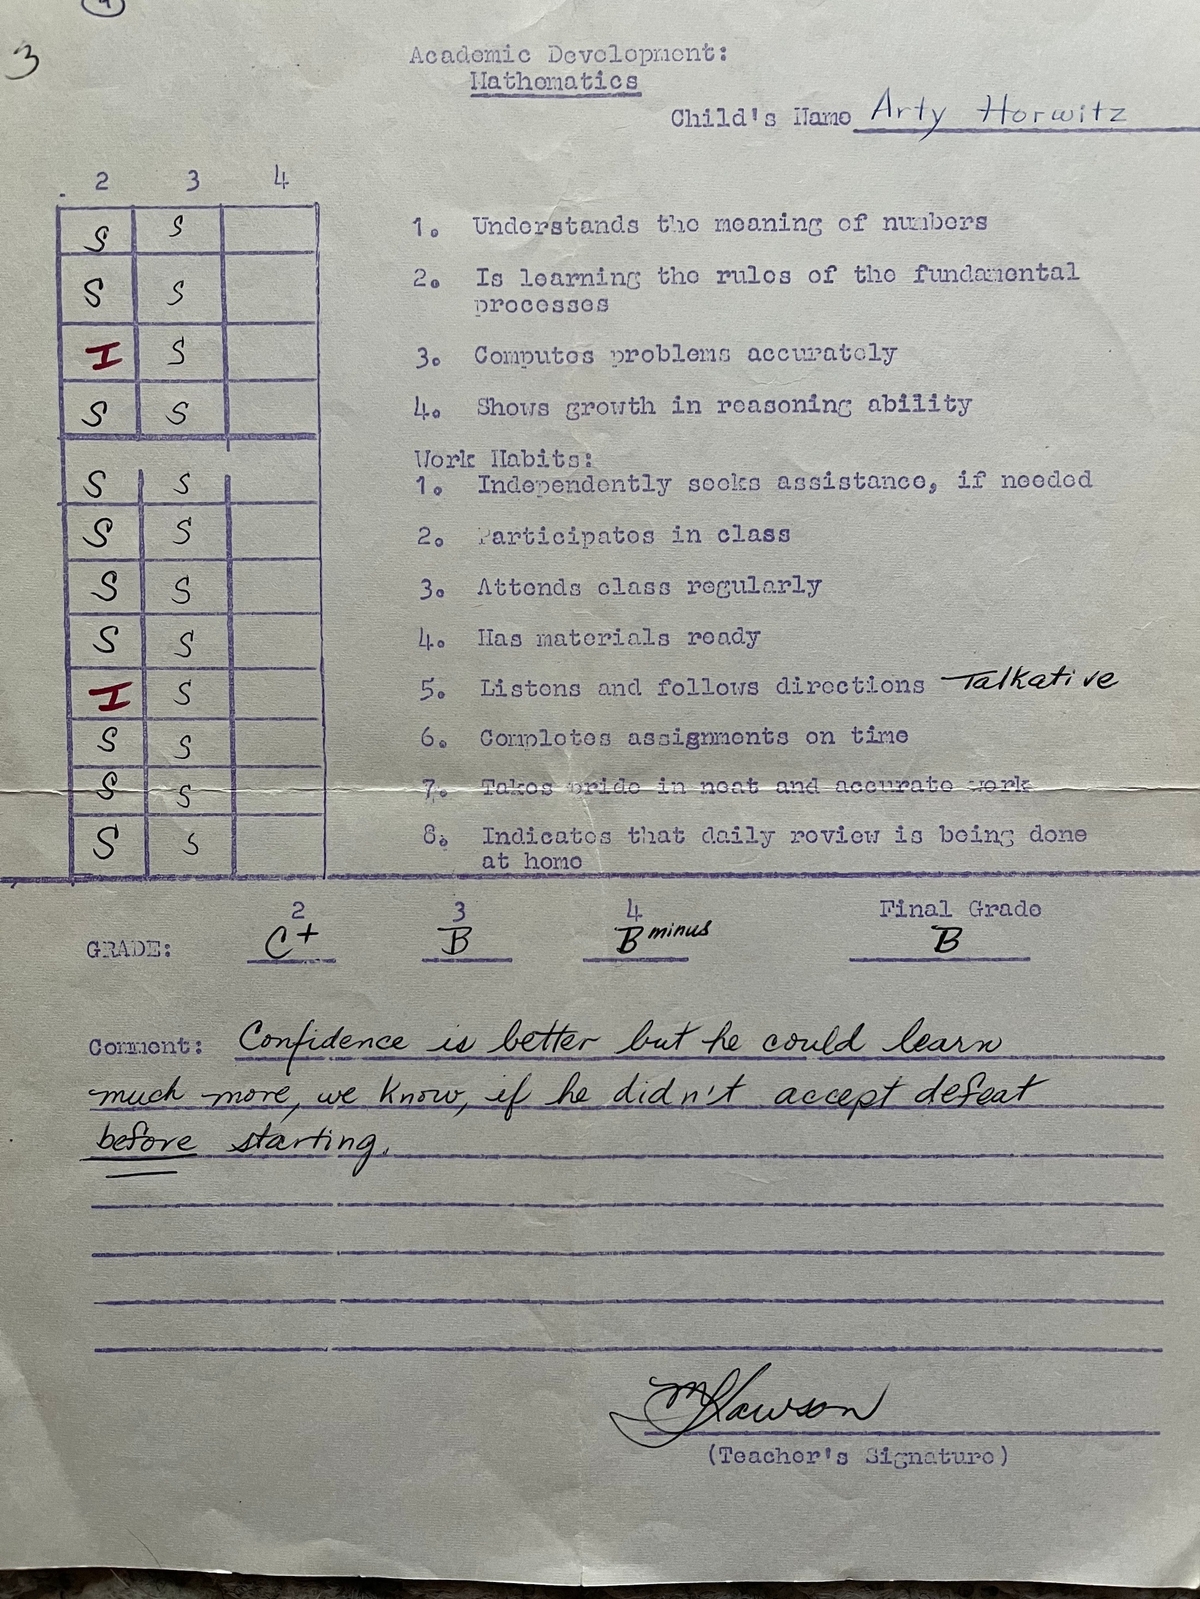 4
3
Academic Development:
Mathematics
Child's Name Arty Horwitz
2 3 4
S S 1. Understands the meaning of numbers
S S 2. Is learning the rules of the fundamental
processes
I S 3. Computes problems accurately
S S 4. Shows growth in reasoning ability
Work Habits:
S S 1. Independently seeks assistance, if needed
S S 2. Participates in class
S S 3. Attends class regularly
S S 4. Has materials ready
I S 5. Listens and follows directions Talkative
S S 6. Completes assignments on time
S S 7. Takes pride in neat and accurate work
S S 8. Indicates that daily review is being done
at home
2 3 4 Final Grade
GRADE: C+ B B minus B
Comment: Confidence is better but he could learn
much more, we know, if he didn't accept defeat
before starting.
Lawson
(Teacher's Signature)